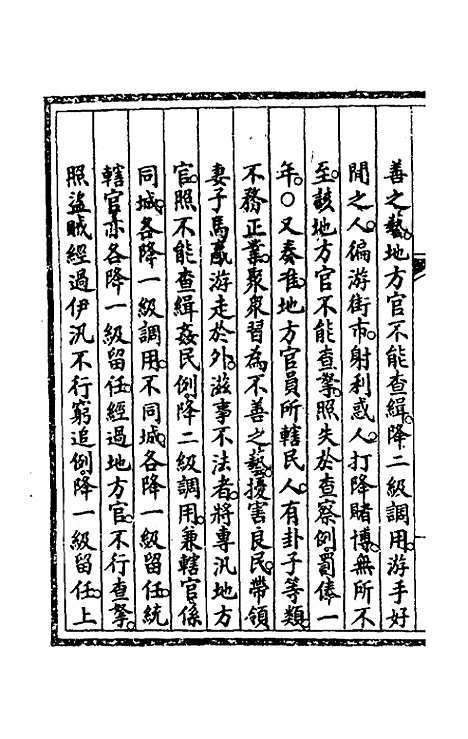 善之藝地方官不能查緝降二級調用游手好
閒之人徧游街市射利惑人打降賭博無所不
至該地方官不能查拏照失於查察例罰俸一
年○又奏准地方官員所轄民人有卦子等類
不務正業聚衆習為不善之藝擾害良民帶領
妻子馬騾游走於外滋事不法者將專汛地方
官照不能查緝姦民例降二級調用兼轄官係
同城各降一級調用不同城各降一級留任統
轄官亦各降一級留任經過地方官不行查拏
照盜賊經過伊汛不行窮追例降一級留任上